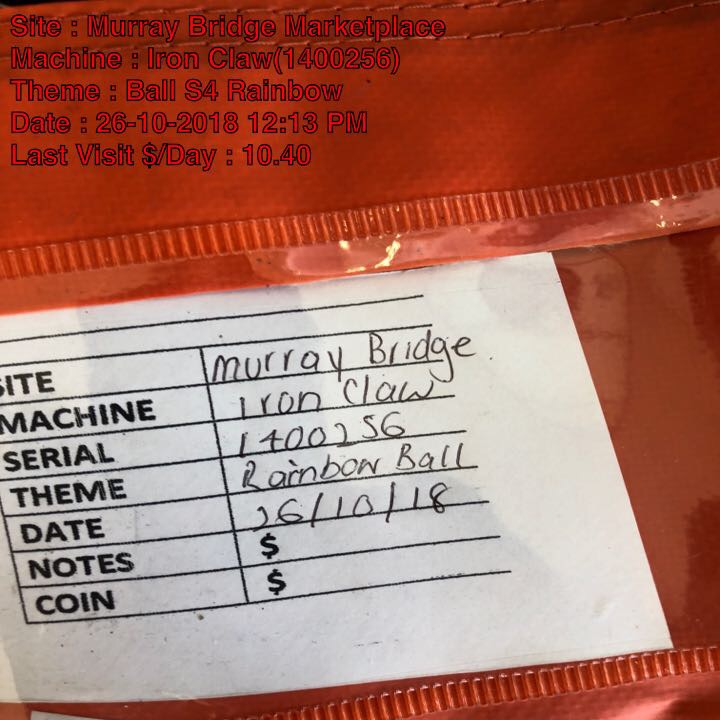 Site : Murray Bridge Marketplace
Machine : Iron Claw(1400256)
Theme : Ball S4 Rainbow
Date : 26-10-2018 12:13 PM
Last Visit $/Day : 10.40
SITE murray Bridge
MACHINE Iron Claw
SERIAL 1400256
THEME Rainbow Ball
DATE 26/10/18
NOTES $
COIN $